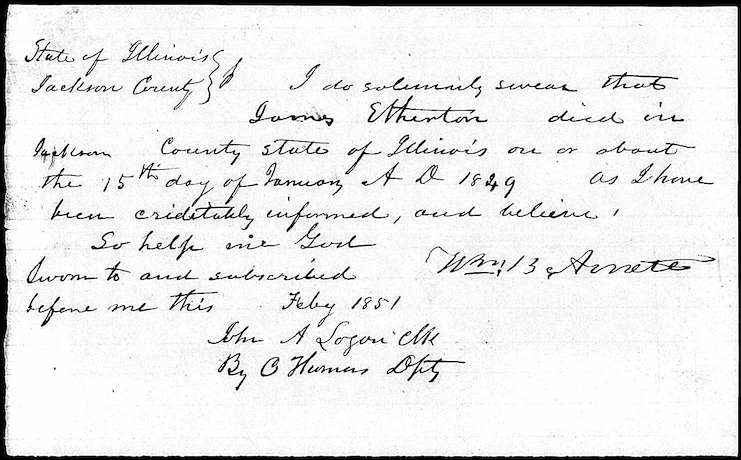 State of Illinois }
Jackson County } I do solemnly swear that
James Etherton died in
Jackson County state of Illinois on or about
the 15th day of January A D 1849 as I have
been criditably informed, and believe,
So help me God
Sworn to and subscribed Wm B Arnett
before me this Feby 1851
John A Logan Clk
By C Humas Dpty